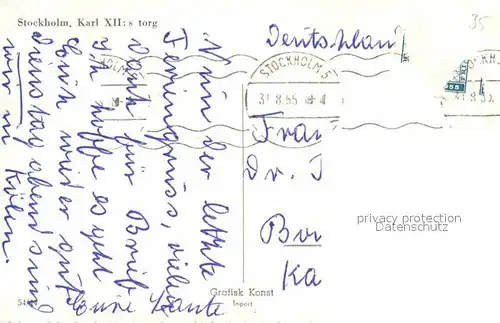 Stockholm, Karl XII:s torg
Nun der letzte
Feriengruss, vielen
Dank für Brief.
Ich hoffe es geht
Euch wieder gut.
Dienstag abend sind
wir in Köln.
Tante
Deutschland
STOCKHOLM 5
31.8.55
Frau
Dr.
privacy protection
Datenschutz
AnsichtskartenVersand.com
Grafisk Konst
Import
35